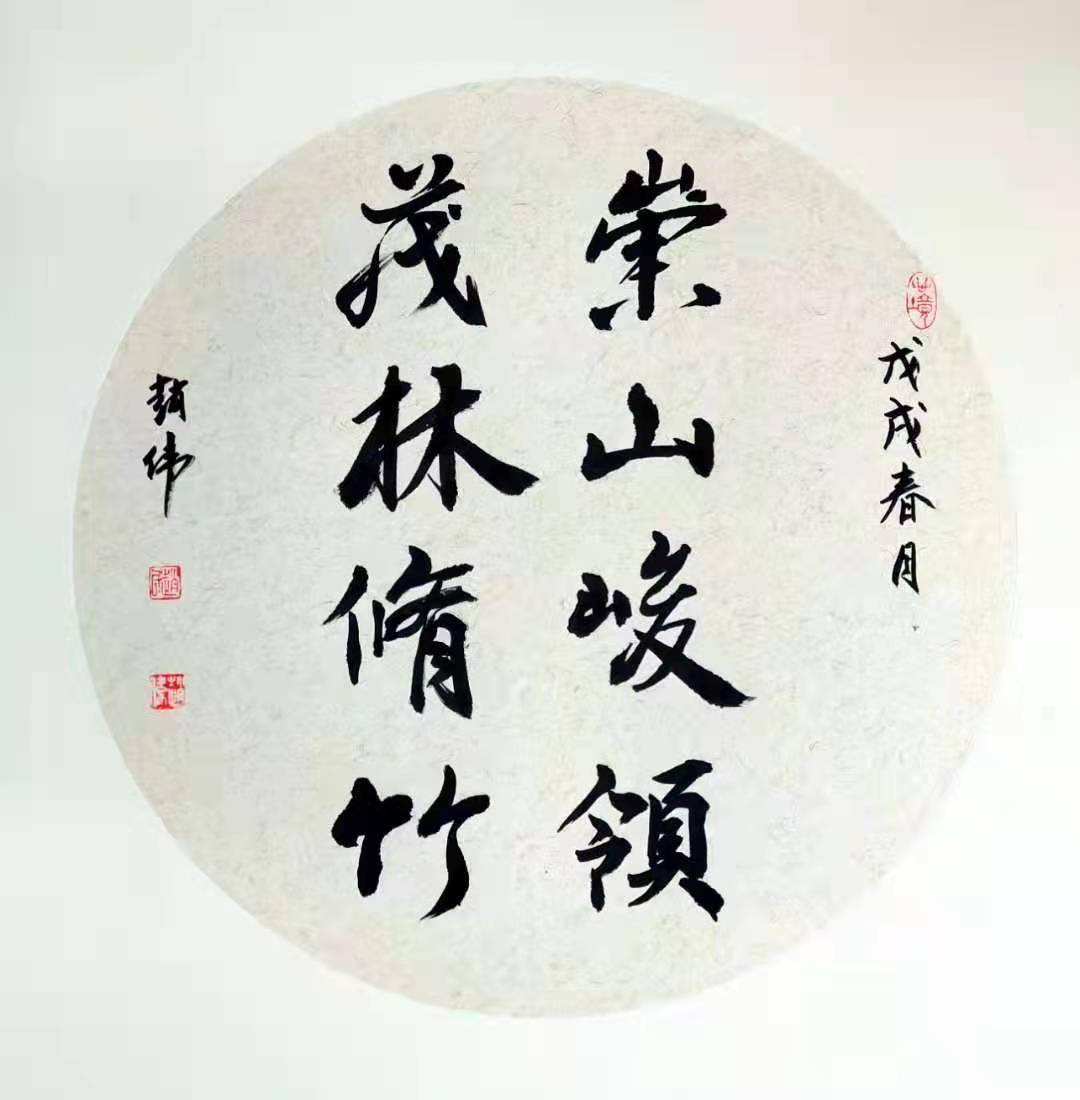 戊戌春月
崇山峻領
茂林脩竹
趙伟